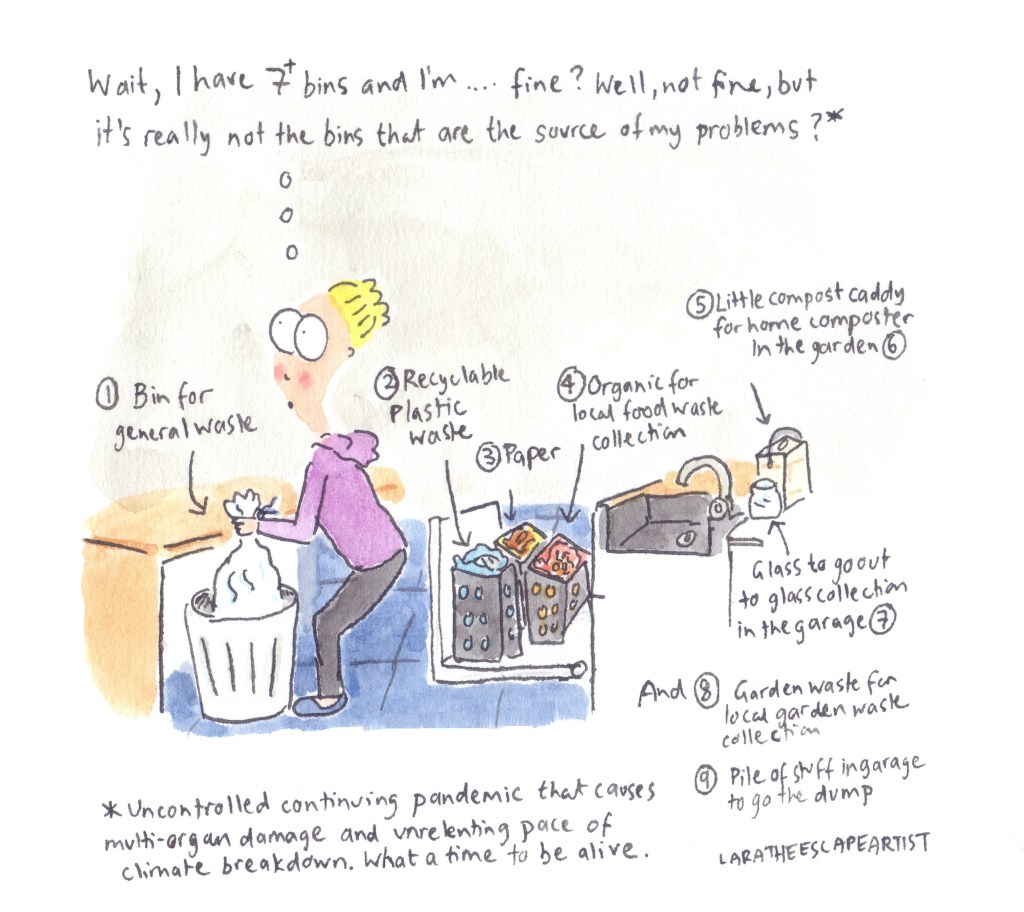 Wait, I have 7+ bins and I'm .... fine? Well, not fine, but
it's really not the bins that are the source of my problems?*
① Bin for
general waste
② Recyclable
Plastic
waste
③ Paper
④ Organic for
local food waste
collection
⑤ Little compost caddy
for home composter
In the garden ⑥
Glass to go out
to glass collection
in the garage ⑦
And ⑧ Garden waste for
local garden waste
collection
⑨ Pile of stuff in garage
to go the dump
* Uncontrolled continuing pandemic that causes
multi-organ damage and unrelenting pace of
climate breakdown. What a time to be alive.
LARATHEESCAPEARTIST